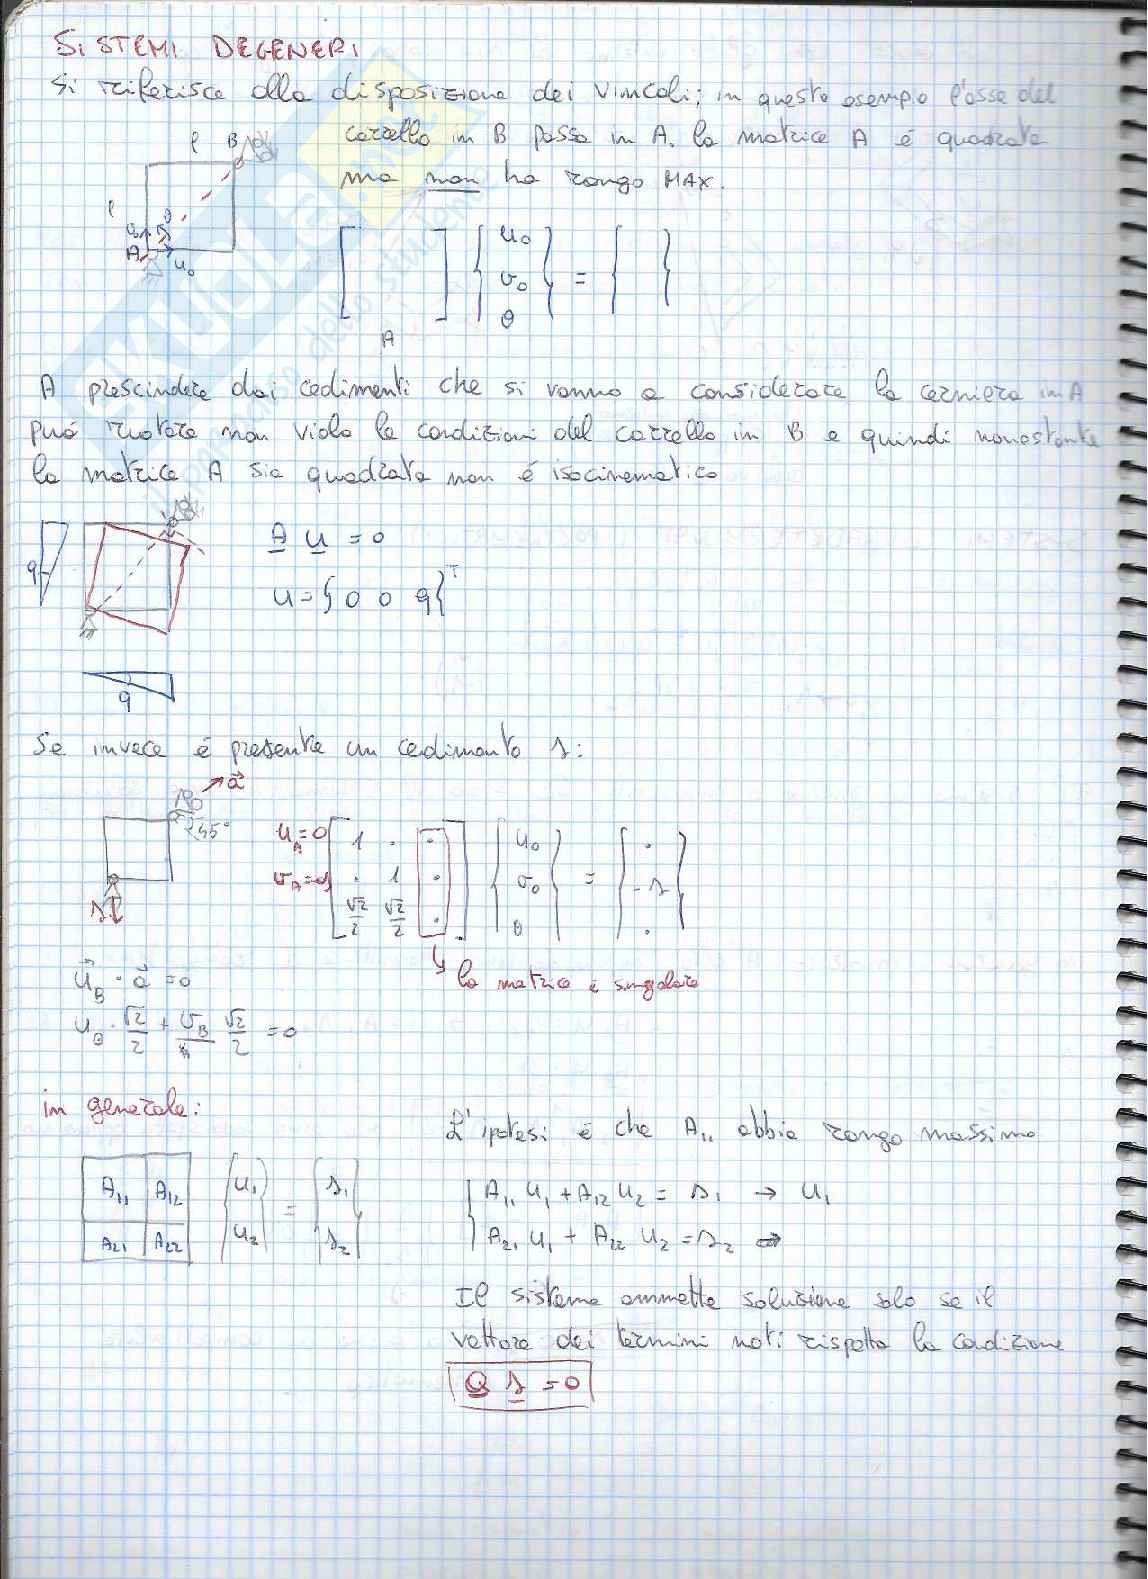 SISTEMI DEGENERI
Si riferisce alla disposizione dei vincoli; in questo esempio l'asse del
carrello in B passa in A. la matrice A é quadrata
ma non ha rango MAX.
l B
l
θ
A u₀
[ ] { u₀ v₀ θ } = { }
A
A prescindere dai cedimenti che si vanno a considerare la cerniera in A
può ruotare non viola le condizioni del carrello in B e quindi nonostante
la matrice A sia quadrata non é isocinematico
q
A u = 0
u = { 0 0 q }ᵀ
q
Se invece é presente un cedimento s:
a⃗
45°
s
u_A=0 [ 1 . . ] { u₀ } = { . }
v_A=-s [ . 1 . ] { v₀ } = { -s }
[ √2/2 √2/2 . ] { θ } = { . }
la matrice é singolare
u⃗_B · a⃗ = 0
u_B · √2/2 + v_B √2/2 = 0
in generale:
L'ipotesi é che A₁₁ abbia rango massimo
A₁₁ A₁₂ { u₁ } = { s₁ }
A₂₁ A₂₂ { u₂ } = { s₂ }
A₁₁ u₁ + A₁₂ u₂ = s₁ → u₁
A₂₁ u₁ + A₂₂ u₂ = s₂ →
Il sistema ammette soluzione solo se il
vettore dei termini noti rispetta la condizione
Q s = 0